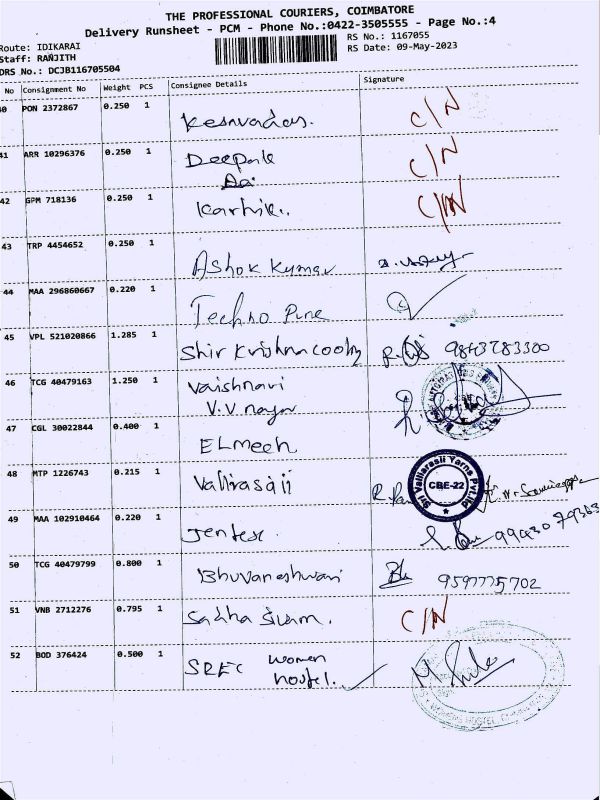 THE PROFESSIONAL COURIERS, COIMBATORE
Delivery Runsheet - PCM - Phone No.:0422-3505555 - Page No.:4
Route: IDIKARAI
Staff: RANJITH
DRS No.: DCJB116705504
RS No.: 1167055
RS Date: 09-May-2023
No Consignment No Weight PCS Consignee Details Signature
40 PON 2372867 0.250 1 Kesavadas. C/N
41 ARR 10296376 0.250 1 Deepak C/N
42 GPM 718136 0.250 1 Karthik. C/N
43 TRP 4454652 0.250 1 Ashok Kumar
44 MAA 296860667 0.220 1 Techno Pune
45 VPL 521020866 1.285 1 Shir Krishna cooling 9843783300
46 TCG 40479163 1.250 1 Vaishnavi
V.V nagar
47 CGL 30022844 0.400 1 ELmech
48 MTP 1226743 0.215 1 Vallirasji Sri Vallirasli Yarns Pvt.ltd CBE-22
49 MAA 102910464 0.220 1 Jentex 9943079363
50 TCG 40479799 0.800 1 Bhuvaneshwari 9597775702
51 VNB 2712276 0.795 1 Sadha Sivam. C/N
52 BOD 376424 0.500 1 SREC women
hostel.